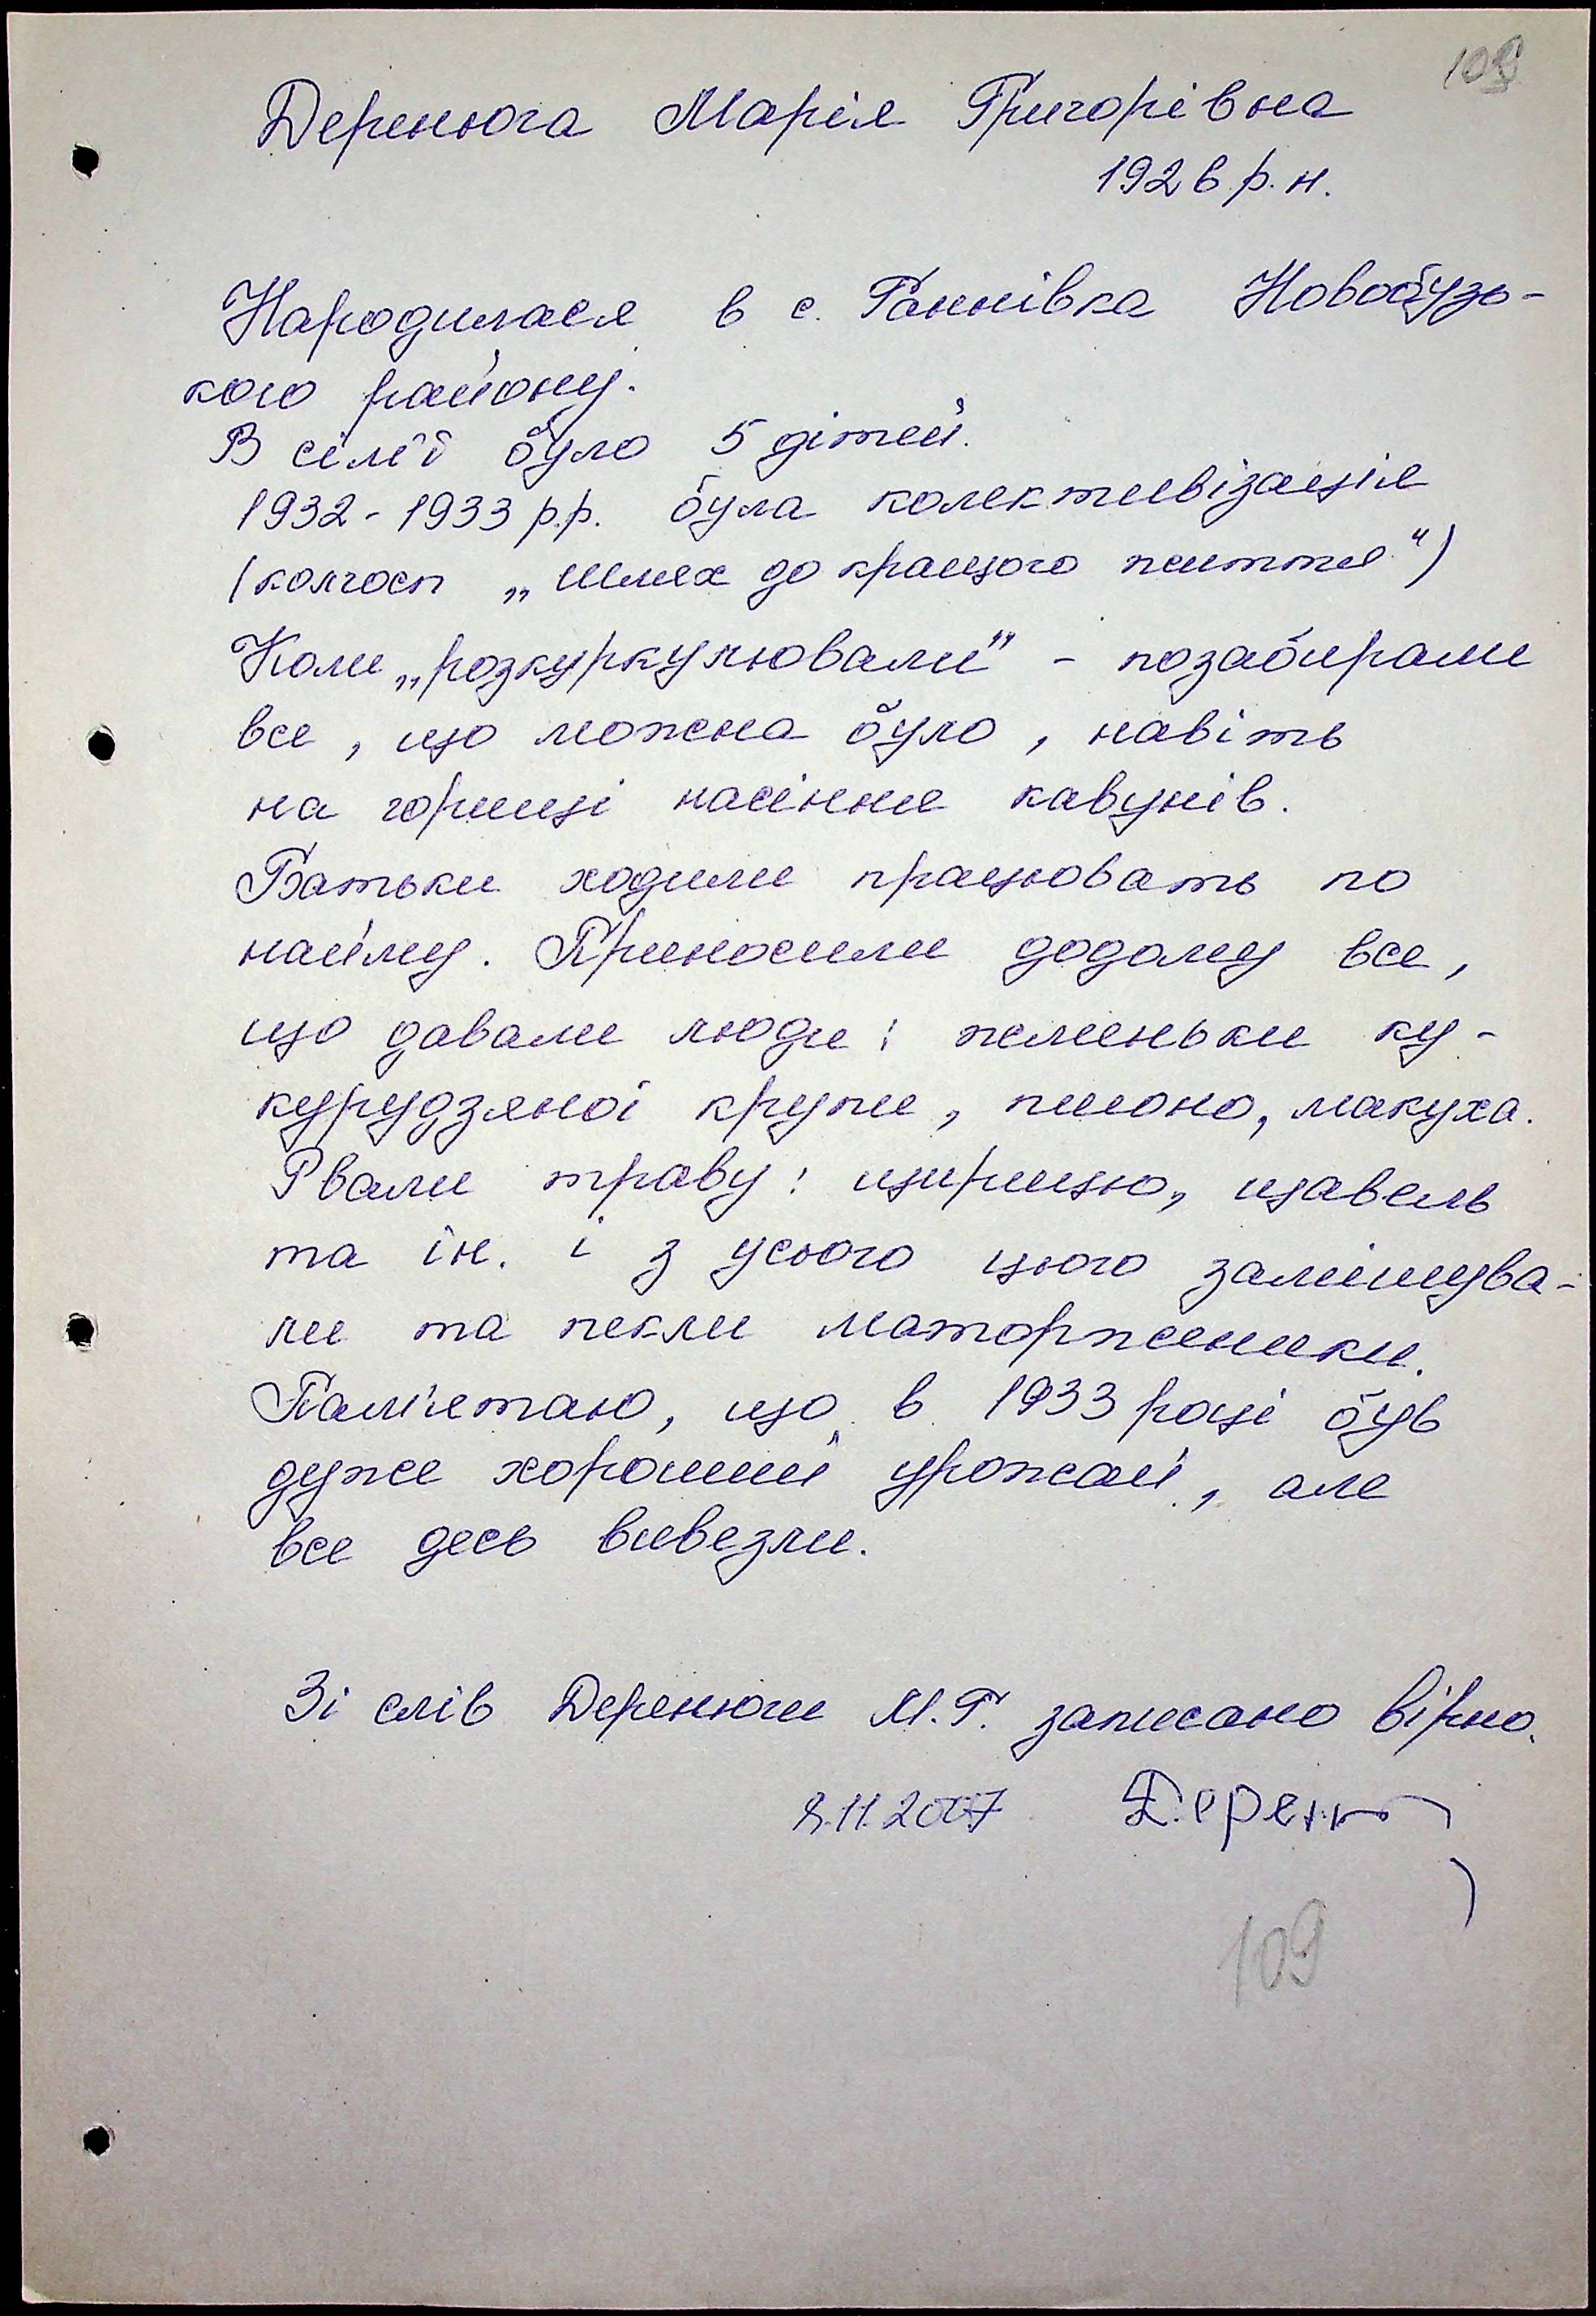 109
Деренюга Марія Григорівна
1926 р. н.
Народилася в с. Ганнівка Новобузь-
кого району.
В сім'ї було 5 дітей.
1932 - 1933 р.р. була колективізація
(колгосп „Шлях до кращого життя")
Коли „розкуркулювали" - позабирали
все, що можна було, навіть
на горищі насіння кавунів.
Батьки ходили працювать по
найму. Приносили додому все,
що давали люди: жменьки ку-
курудзяної крупи, пшоно, макуха.
Рвали траву: щирицю, щавель
та ін. і з усього цього замішува-
ли та пекли маторженики.
Пам'ятаю, що в 1933 році був
дуже хороший урожай, але
все десь вивезли.
Зі слів Деренюги М.Г. записано вірно.
8.11.2007
109